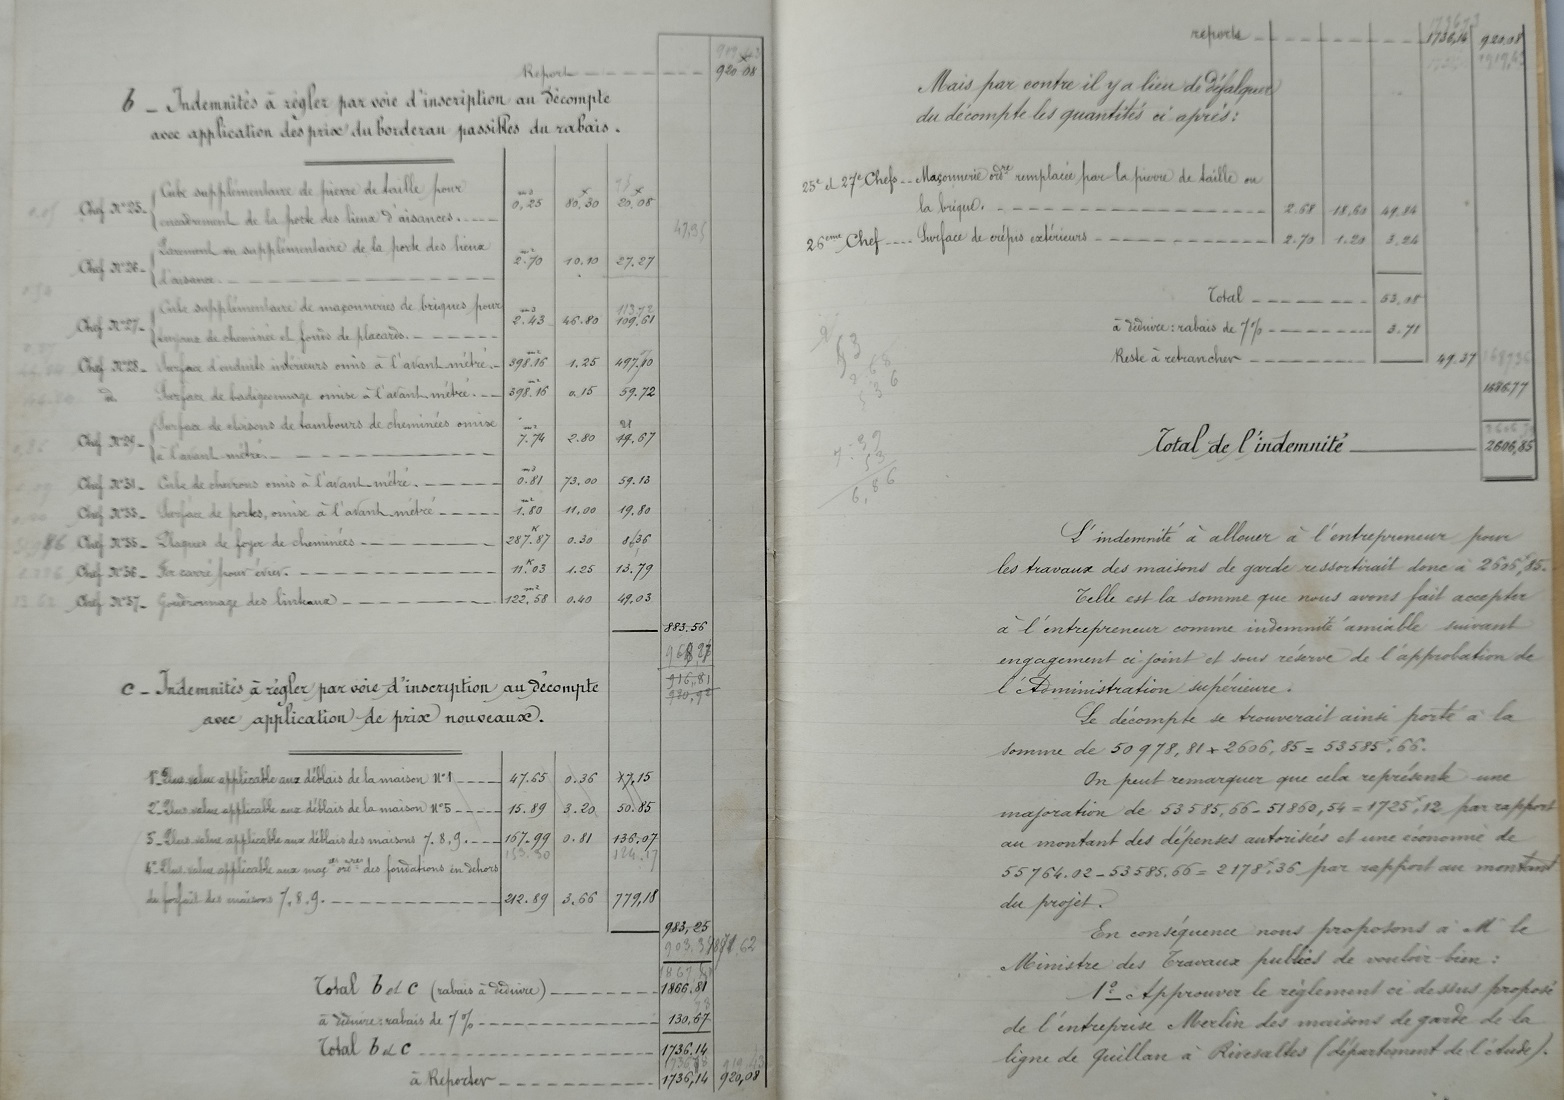 Report 920.08
b _ Indemnités à régler par voie d'inscription au décompte
avec application des prix du bordereau passibles du rabais.
Chef N°25_ Cube supplémentaire de pierre de taille pour
encadrement de la porte des lieux d'aisances. m3 0,25 80,30 20,08
Chef N°26_ Parement vu supplémentaire de la porte des lieux
d'aisance. 2.70 10.10 27.27
Chef N°27_ Cube supplémentaire de maçonneries de briques pour
tuyaux de cheminée et fonds de placards. m3 2.43 46.80 109.61
Chef N°28_ Surface d'enduits intérieurs omis à l'avant métré. m2 398.16 1.25 497,10
d. Surface de badigeonnage omise à l'avant métré. 398.16 0.15 59.72
Chef N°29_ Surface de cloisons de tambours de cheminées omise
à l'avant métré. 7.74 2.80 19.67
Chef N°31_ Cube de chevrons omis à l'avant métré. m3 0.81 73.00 59.13
Chef N°33_ Surface de portes, omise à l'avant métré m2 1.80 11,00 19,80
Chef N°35_ Plaques de foyer de cheminées K 287.87 0.30 86,36
Chef N°36_ Fer carré pour évier. K 11.03 1.25 13.79
Chef N°37_ Goudronnage des linteaux m2 122.58 0.40 49.03
883.56
916,81
c _ Indemnités à régler par voie d'inscription au décompte
avec application de prix nouveaux.
1° Plus value applicable aux déblais de la maison N°1 47.65 0.36 17,15
2° Plus value applicable aux déblais de la maison N°5 15.89 3.20 50.85
3_ Plus value applicable aux déblais des maisons 7.8.9. 167.99 0.81 136.07
4° Plus value applicable aux maç ries ord res des fondations en dehors
du forfait des maisons 7.8.9. 212.89 3.66 779,18
983,25
Total b et c (rabais à déduire) 1866,81
à déduire: rabais de 7% 130,67
Total b et c 1736,14
à Reporter 1736,14 920,08
reports 1736,14 920.08
Mais par contre il y a lieu de défalquer
du décompte les quantités ci après:
25e et 27e Chefs Maçonnerie ordre remplacée par la pierre de taille ou
la brique. 2.68 18,60 49.84
26ème Chef Surface de crépis extérieurs 2.70 1.20 3.24
Total 53,08
à déduire: rabais de 7% 3.71
Reste à retrancher 49.37
1686.77
Total de l'indemnité 2606,85
L'indemnité à allouer à l'entrepreneur pour
les travaux des maisons de garde ressortirait donc à 2606f,85.
Telle est la somme que nous avons fait accepter
à l'entrepreneur comme indemnité amiable suivant
engagement ci joint et sous réserve de l'approbation de
l'Administration supérieure.
Le décompte se trouverait ainsi porté à la
somme de 50978,81 + 2606,85 = 53585f.66.
On peut remarquer que cela représente une
majoration de 53585,66 _ 51860,54 = 1725f,12 par rapport
au montant des dépenses autorisées et une économie de
55764.02 _ 53585.66 = 2178f.36 par rapport au montant
du projet.
En conséquence nous proposons à Mr le
Ministre des Travaux publics de vouloir bien:
1° Approuver le règlement ci dessus proposé
de l'entreprise Merlin des maisons de garde de la
ligne de Quillan à Rivesaltes (département de l'Aude).